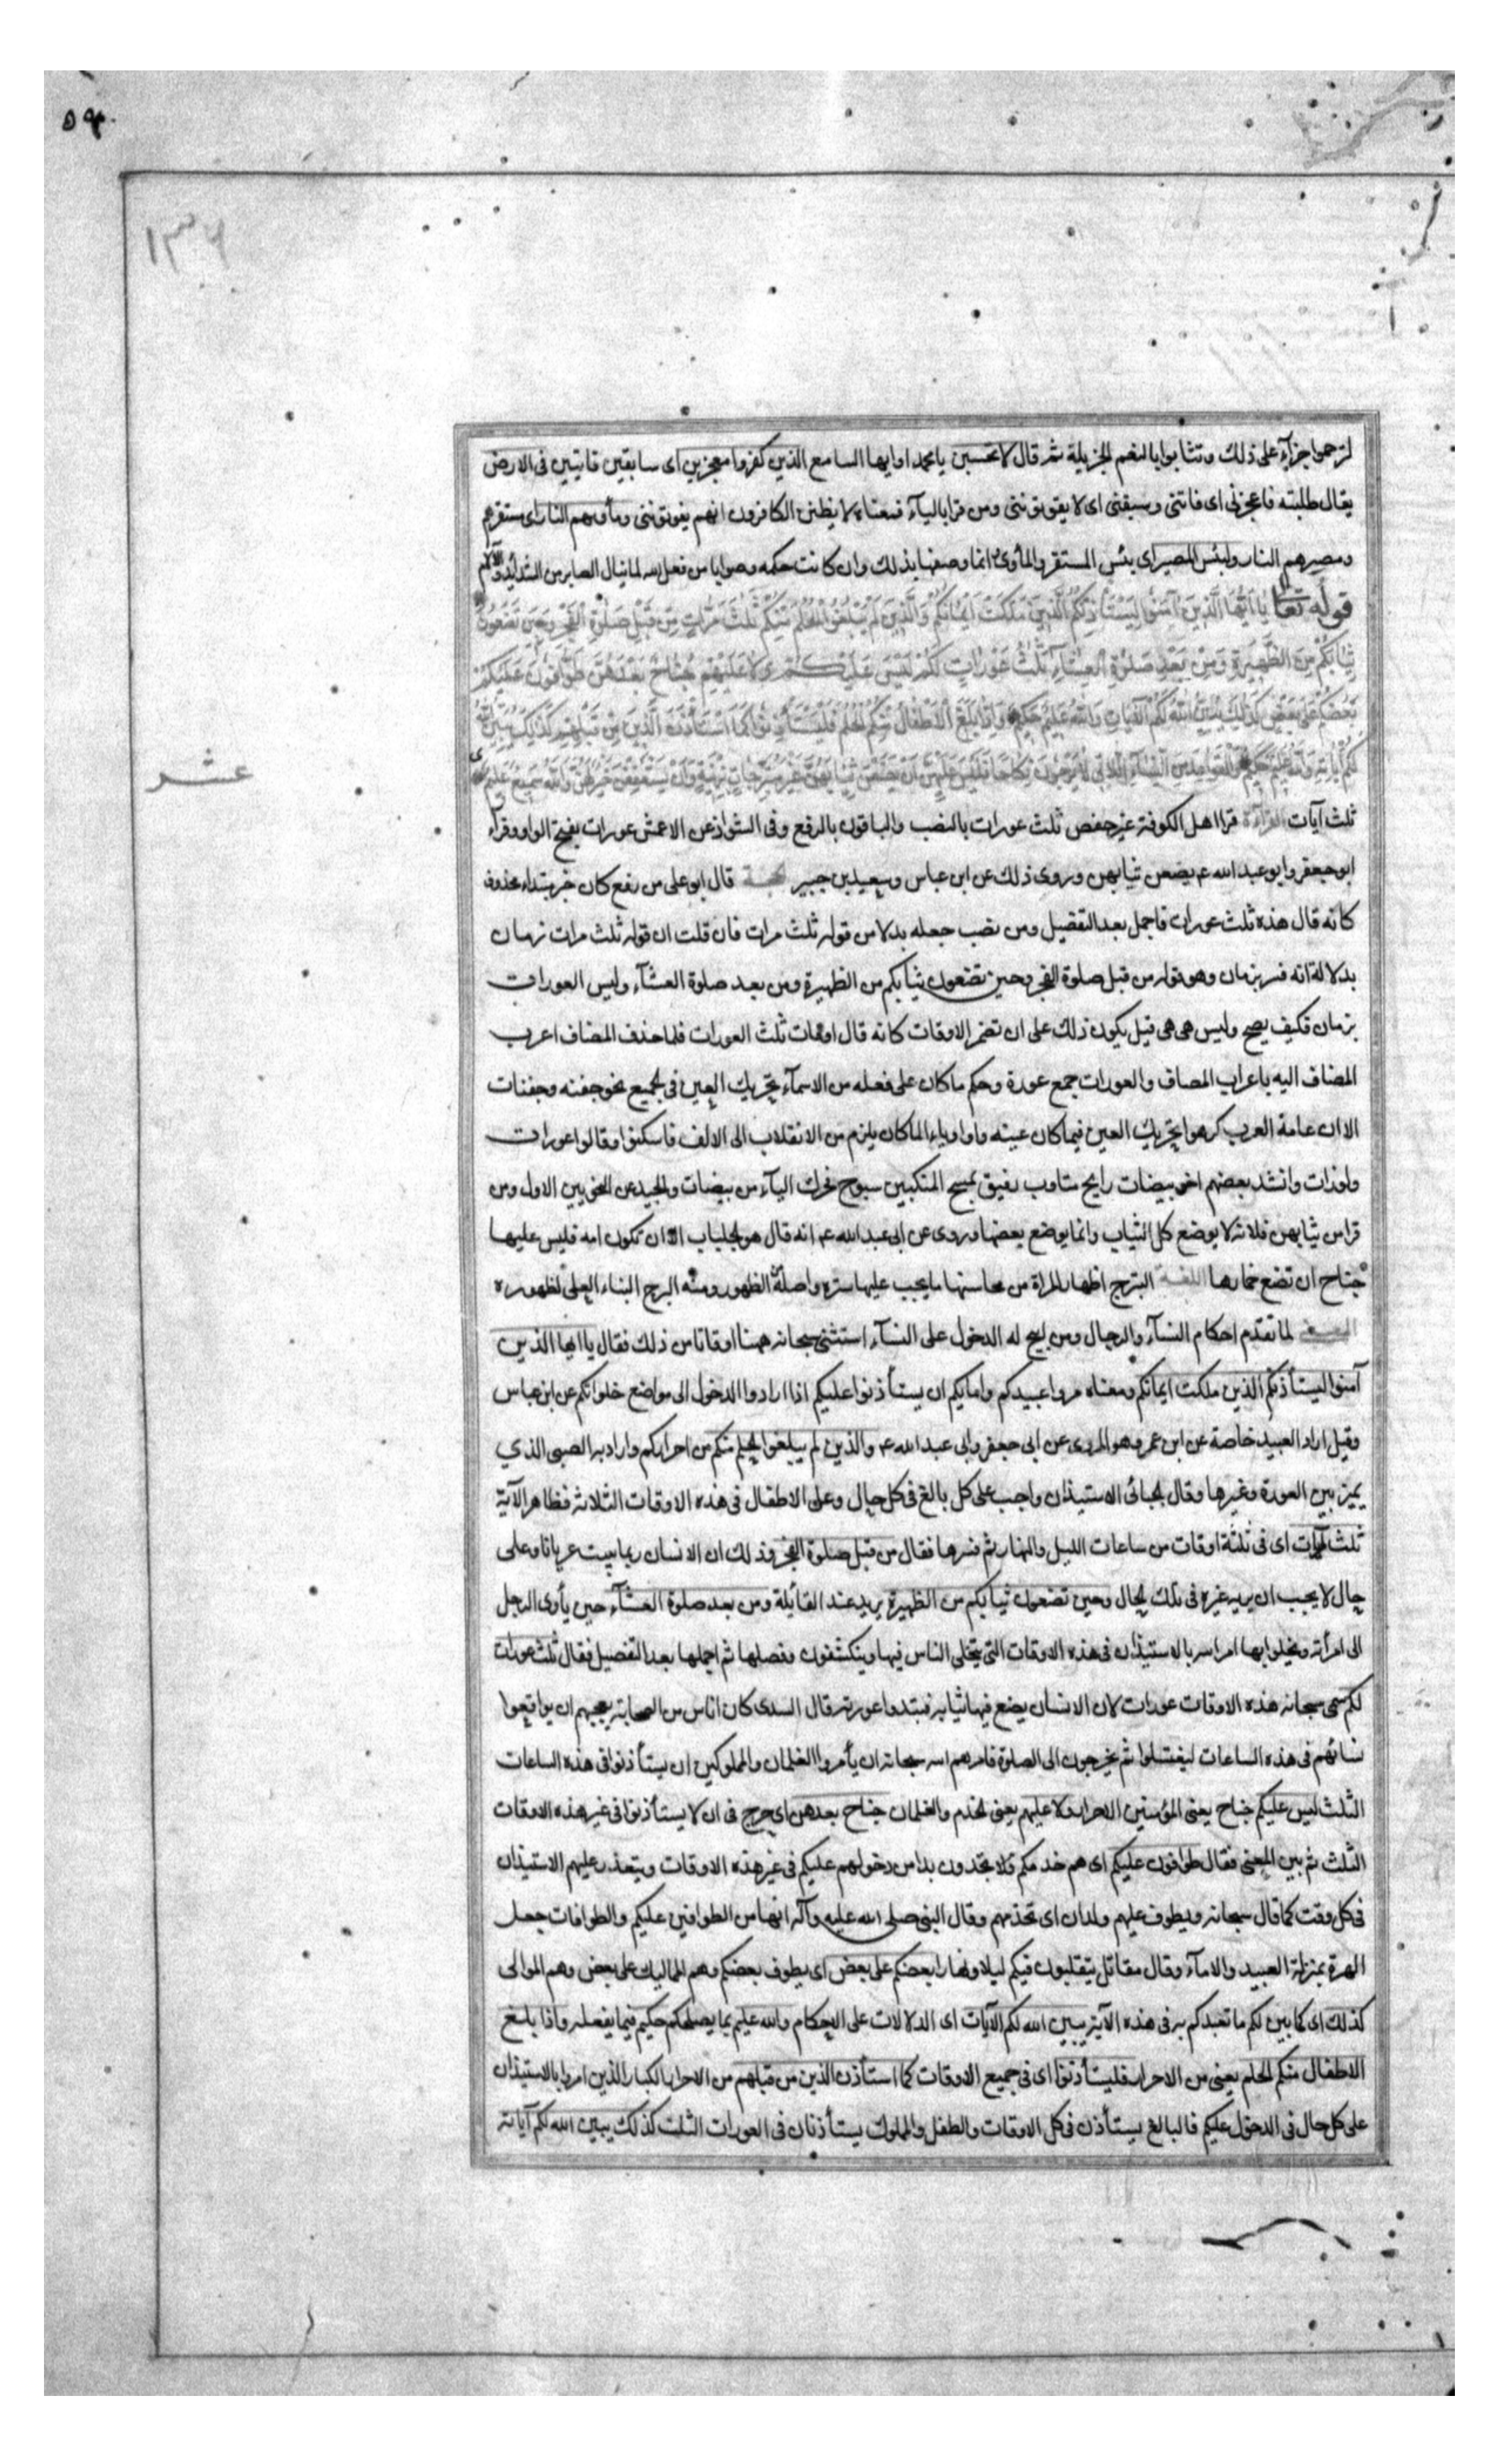 ٥٩
١٣٦
لترحموا جزآء على ذلك وتثابوا بالنعم الجزيلة ثم قال لا تحسبن يا محمد او ايها السامع الذين كفروا معجزين اى سابقين فايتين فى الارض
يقال طلبته فاعجزنى اى فاتنى وسبقنى اى لا يفوتوننى ومن قرا باليآء فمعناه لا يظنن الكافرون انهم يفوتوننى ومأويهم النار اى مستقرهم
ومصيرهم النار ولبئس المصير اى بئس المستقر والمأوى انما وصفها بذلك وان كانت حكمه وصوابا من فعل الله لما ينال الصاير من الشدايد والآلام
قوله تعا يَا اَيُّهَا الَّذِينَ اٰمَنُوا لِيَسْتَأْذِنْكُمُ الَّذِينَ مَلَكَتْ اَيْمَانُكُمْ وَالَّذِينَ لَمْ يَبْلُغُوا الْحُلُمَ مِنْكُمْ ثَلٰثَ مَرَّاتٍ مِنْ قَبْلِ صَلٰوةِ الْفَجْرِ وَحِينَ تَضَعُونَ
ثِيَابَكُمْ مِنَ الظَّهِيرَةِ وَمِنْ بَعْدِ صَلٰوةِ الْعِشَآءِ ثَلٰثُ عَوْرَاتٍ لَكُمْ لَيْسَ عَلَيْكُمْ وَلَا عَلَيْهِمْ جُنَاحٌ بَعْدَهُنَّ طَوَّافُونَ عَلَيْكُمْ
بَعْضُكُمْ عَلٰى بَعْضٍ كَذٰلِكَ يُبَيِّنُ اللّٰهُ لَكُمُ الْاٰيَاتِ وَاللّٰهُ عَلِيمٌ حَكِيمٌ وَاِذَا بَلَغَ الْاَطْفَالُ مِنْكُمُ الْحُلُمَ فَلْيَسْتَأْذِنُوا كَمَا اسْتَأْذَنَ الَّذِينَ مِنْ قَبْلِهِمْ كَذٰلِكَ يُبَيِّنُ اللّٰهُ
لَكُمْ اٰيَاتِهِ وَاللّٰهُ عَلِيمٌ حَكِيمٌ وَالْقَوَاعِدُ مِنَ النِّسَآءِ اللَّاتِى لَا يَرْجُونَ نِكَاحًا فَلَيْسَ عَلَيْهِنَّ اَنْ يَضَعْنَ ثِيَابَهُنَّ غَيْرَ مُتَبَرِّجَاتٍ بِزِينَةٍ وَاَنْ يَسْتَعْفِفْنَ خَيْرٌ لَهُنَّ وَاللّٰهُ سَمِيعٌ عَلِيمٌ
عشر
ثلث آيات القرآءة قرا اهل الكوفة غير حفص ثلث عورات بالنصب والباقون بالرفع وفى الشواذ عن الاعمش عورات بفتح الواو وقراء
ابو جعفر وابو عبد الله ع يضعن ثيابهن وروى ذلك عن ابن عباس وسعيد بن جبير الحجة قال ابو على من رفع كان خبر مبتداء محذوف
كانه قال هذه ثلث عورات فاجمل بعد التفصيل ومن نصب جعله بدلا من قوله ثلث مرات فان قلت ان قوله ثلث مرات زمان
بدلالة انه فسر بزمان وهو قوله من قبل صلوة الفجر وحين تضعون ثيابكم من الظهيرة ومن بعد صلوة العشآء وليس العورات
بزمان فكيف يصح وليس هى هى قيل يكون ذلك على ان تضمر الاوقات كانه قال اوقات ثلث العورات فلما حذف المضاف اعرب
المضاف اليه باعراب المضاف والعورات جمع عورة وحكم ما كان على فعله من الاسمآء تحريك العين فى الجميع نحو جفنه وجفنات
الا ان عامة العرب كرهوا تحريك العين فيما كان عينه واوا او ياء لما كان يلزم من الانقلاب الى الالف فاسكنوا وقالوا عورات
ولوزات وانشد بعضهم اخو بيضات رايح متاوب رفيق بمسح المنكبين سبوح فحرك اليآء من بيضات والجيد عن النحويين الاول ومن
قرا من ثيابهن فلانه لا يوضع كل الثياب وانما يوضع بعضها وروى عن ابى عبد الله ع انه قال هو الجلباب الا ان تكون امه فليس عليها
جناح ان تضع خمارها اللغة التبرج اظهار المراة من محاسنها ما يجب عليها ستره واصله الظهور ومنه البرج البناء العالى لظهوره
المعنى لما تقدم احكام النسآء والرجال ومن ابيح له الدخول على النسآء استثنى سبحانه ههنا اوقاتا من ذلك فقال يا ايها الذين
آمنوا ليستأذنكم الذين ملكت ايمانكم ومعناه مروا عبيدكم وامايكم ان يستأذنوا عليكم اذا ارادوا الدخول الى مواضع خلواتكم عن ابن عباس
وقيل اراد العبيد خاصة عن ابن عمر وهو المروى عن ابى جعفر وابى عبد الله ع والذين لم يبلغوا الحلم منكم من احراركم واراد به الصبى الذي
يميز بين العورة وغيرها وقال الجبائى الاستيذان واجب على كل بالغ فى كل حال وعلى الاطفال فى هذه الاوقات الثلاثه فظاهر الآية
ثلث مرات اى فى ثلثة اوقات من ساعات الليل والنهار ثم فسرها فقال من قبل صلوة الفجر وذلك ان الانسان ربما يبيت عريانا وعلى
حال لا يجب ان يريه غيره فى تلك الحال وحين تضعون ثيابكم من الظهيرة يريد عند القائلة ومن بعد صلوة العشآء حين يأوى الرجل
الى امرأته ويخلوا بها امر الله بالاستيذان فى هذه الاوقات التى يتخلى الناس فيها وينكشفون وفصلها ثم اجملها بعد التفصيل فقال ثلث عورات
لكم سمى سبحانه هذه الاوقات عورات لان الانسان يضع فيها ثيابه فتبدوا عورته قال السدى كان اناس من الصحابة يعجبهم ان يواقعوا
نسائهم فى هذه الساعات ليغتسلوا ثم يخرجون الى الصلوة فامرهم الله سبحانه ان يأمروا الغلمان والمملوكين ان يستأذنوا فى هذه الساعات
الثلث ليس عليكم جناح يعنى المؤمنين الاحرار ولا عليهم يعنى الخدم والغلمان جناح بعدهن اى حرج فى ان لا يستأذنوا فى غير هذه الاوقات
الثلث ثم بين المعنى فقال طوافون عليكم اى هم خدمكم فلا يجدون بدا من دخولهم عليكم فى غير هذه الاوقات ويتعذر عليهم الاستيذان
فى كل وقت كما قال سبحانه ويطوف عليهم ولدان اى تخدمهم وقال النبى صلى الله عليه وآله انها من الطوافين عليكم والطوافات جعل
الهرة بمنزلة العبيد والامآء وقال مقاتل يتقلبون فيكم ليلا ونهارا بعضكم على بعض اى يطوف بعضكم وهم المماليك على بعض وهم الموالى
كذلك اى كما بين لكم ما تعبدكم به فى هذه الآية يبين الله لكم الآيات اى الدلالات على الاحكام والله عليم بما يصلحكم حكيم فيما يفعله واذا بلغ
الاطفال منكم الحلم يعنى من الاحرار فليستأذنوا اى فى جميع الاوقات كما استأذن الذين من قبلهم من الاحرار الكبار الذين امروا بالاستيذان
على كل حال فى الدخول عليكم فالبالغ يستأذن فى كل الاوقات والطفل والمملوك يستأذنان فى العورات الثلث كذلك يبين الله لكم آياته